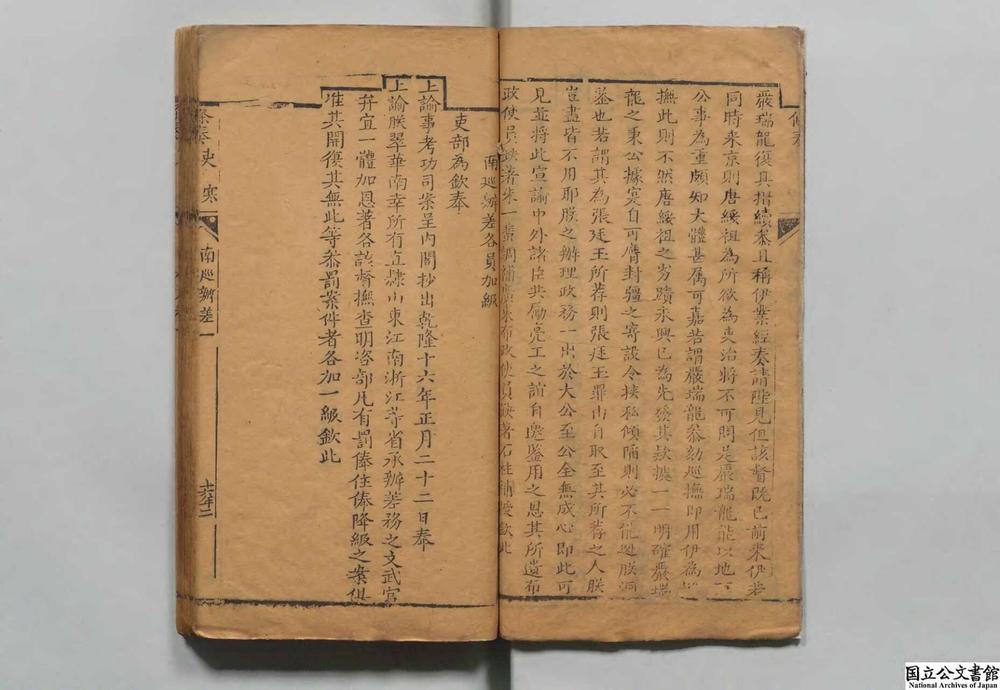 條奏
嚴瑞龍復具摺續叅且稱伊業經奏請陛見但該督既已前來伊若
同時來京則唐綏祖為所欲為吏治將不可問是嚴瑞龍能以地
公事為重頗知大體甚屬可嘉若謂嚴瑞龍叅劾巡撫即用伊為
撫此則不然唐綏祖之劣蹟永興已為先發其欵據一一明確嚴瑞
龍之秉公據寔自可膺封疆之寄設令挾私傾陷則必不能逃朕洞
鉴也若謂其為張廷玉所荐則張廷玉罪由自取至其所荐之人朕
豈盡皆不用耶朕之辦理政務一出於大公至公全無成心即此可
見並將此宣諭中外諸臣共勵亮工之誼自邀鉴用之恩其所遺布
政使員缺著朱一蜚調補布政使員缺著石柱補授欽此
南廵辦差各員加級
吏部為欽奉
上諭事考功司案呈內閣抄出乾隆十六年正月二十二日奉
上諭朕翠華南幸所有直隸山東江南浙江等省承辦差務之文武官
弁宜一體加恩著各該督撫查明咨部凡有罰俸住俸降級之案俱
准其開復其無此等叅罰案件者各加一級欽此
條奏 吏 寒
南廵辦差 一
十六年二
国立公文書館
National Archives of Japan